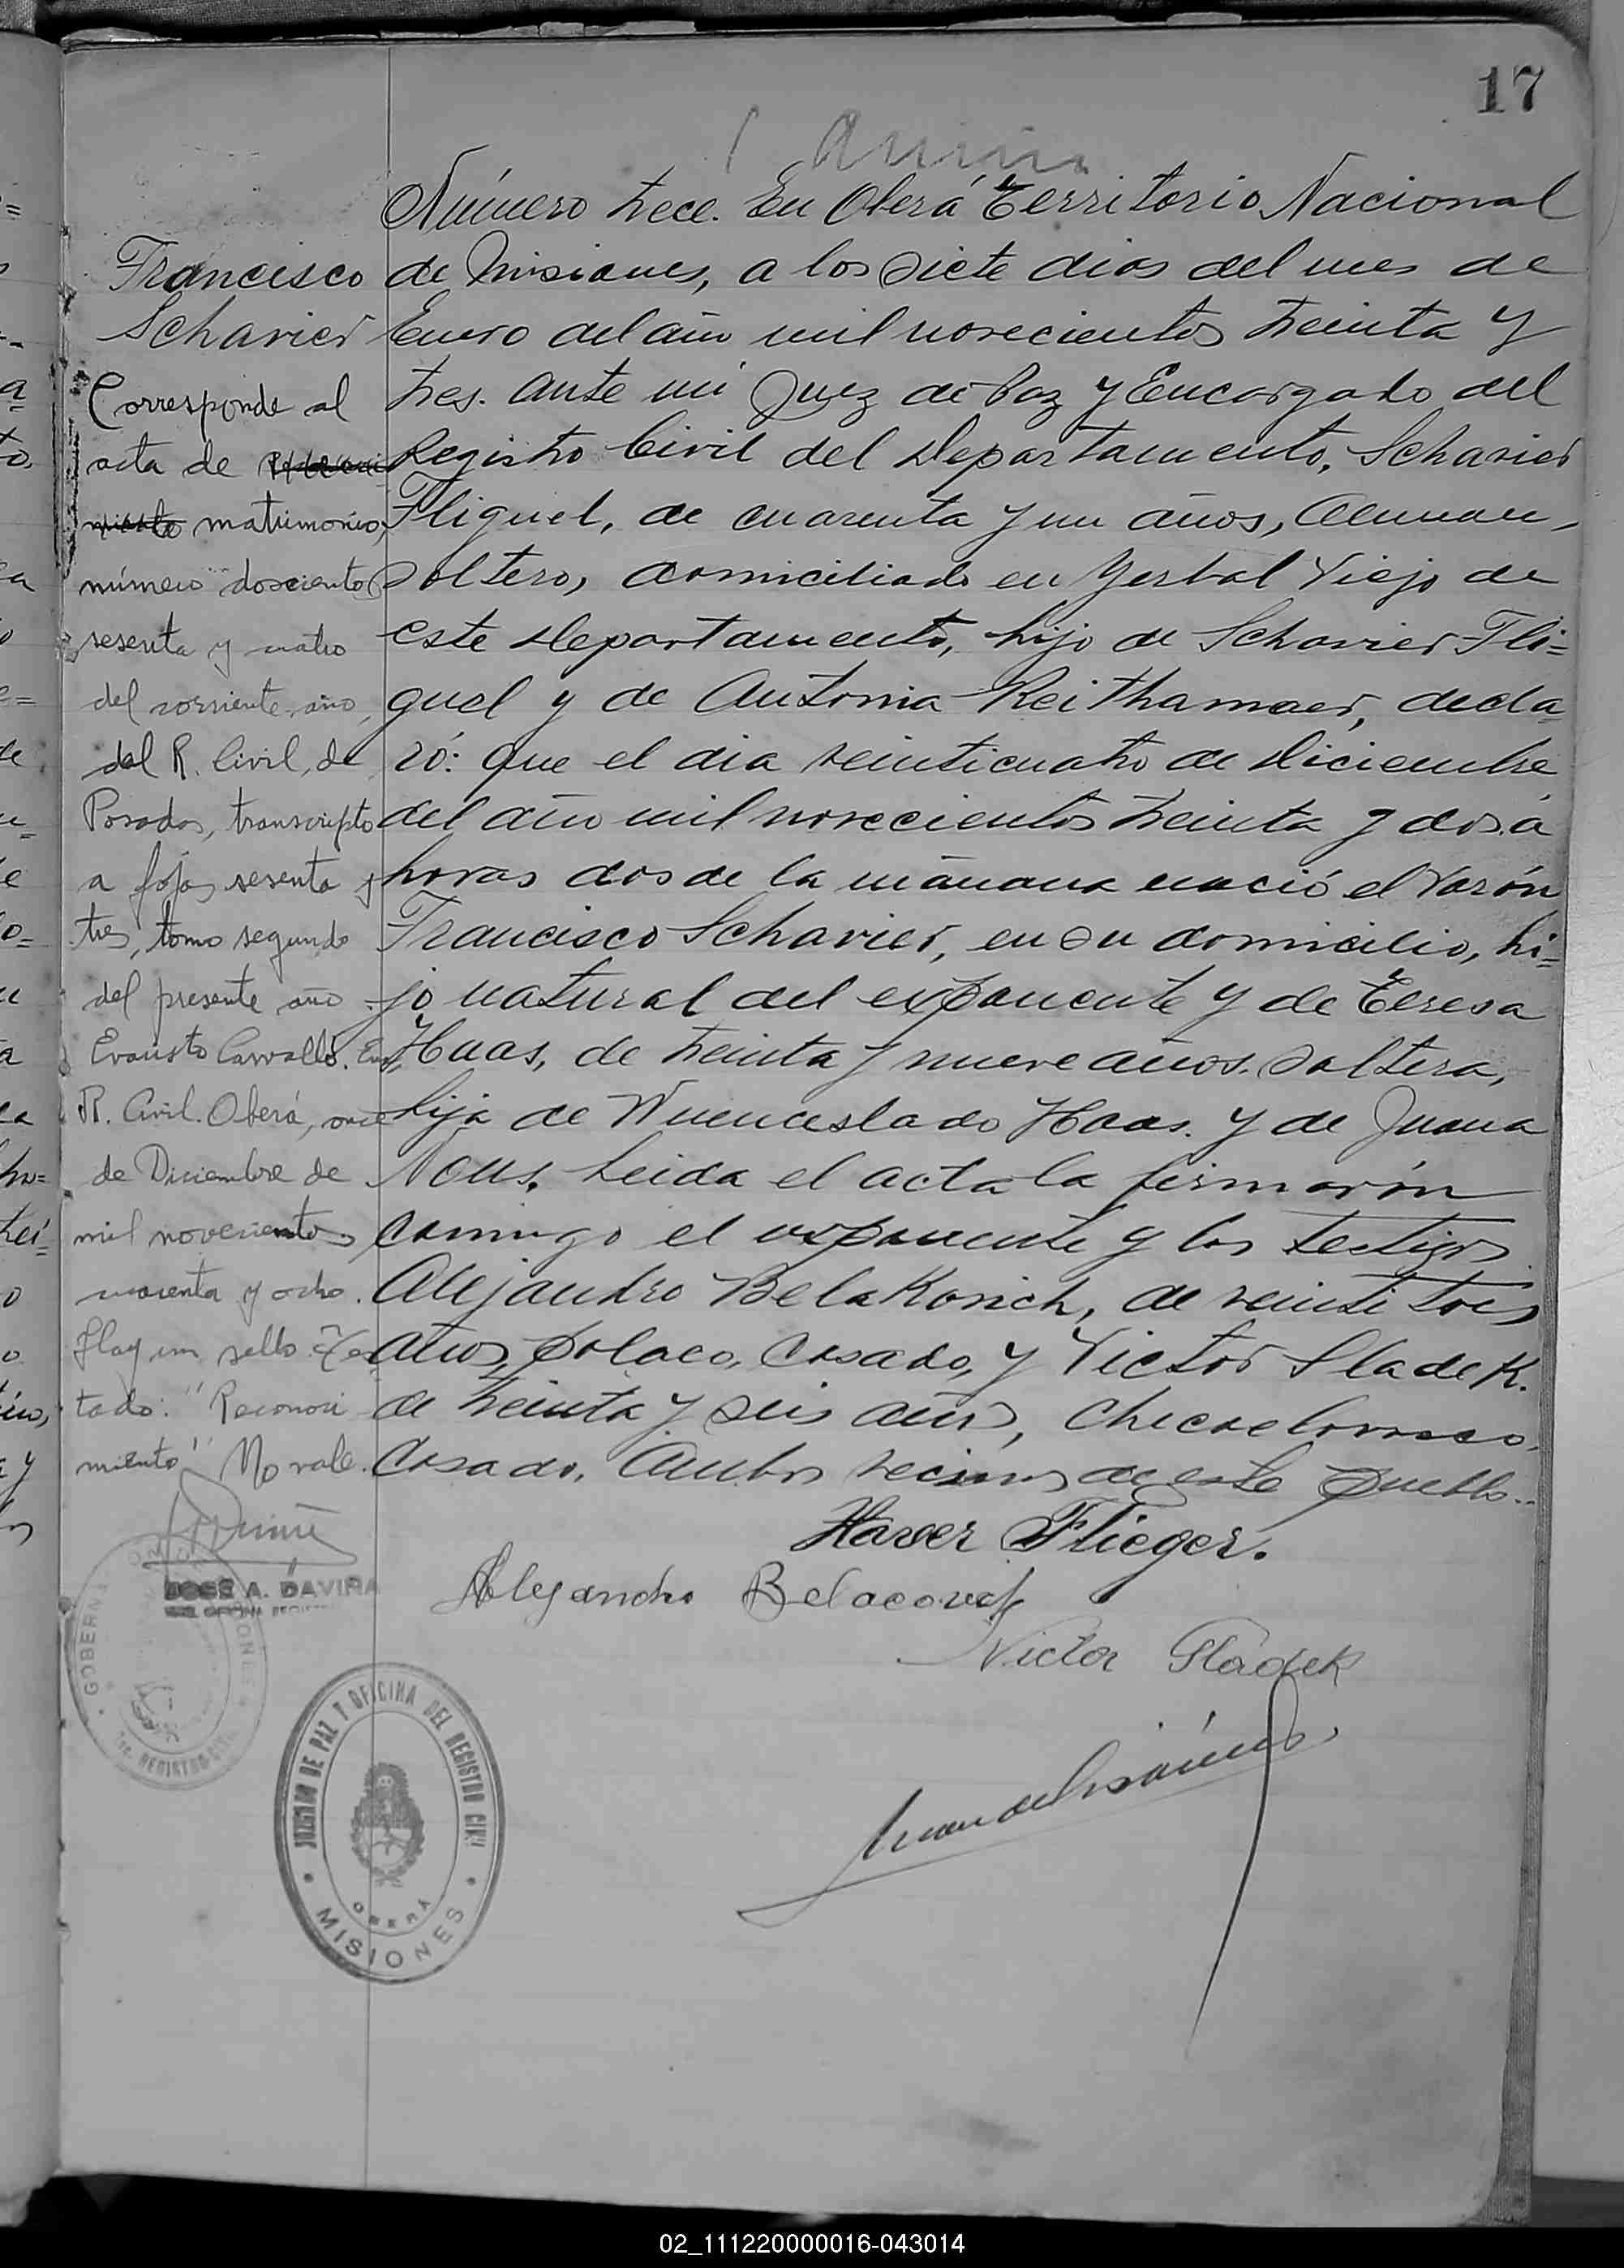 17
Número trece. En Oberá Territorio Nacional
de Misiones, a los siete dias del mes de
Enero del año mil novecientos treinta y
tres. ante mi Juez de Paz y Encargado del
Registro Civil del Departamento, Schavier
Fliguel, de cuarenta y un años, Aleman,
soltero, domiciliado en Yerbal Viejo de
este Departamento, hijo de Schavier Fli=
guel y de Antonia Reithamaer, decla
ró: que el dia veinticuatro de Diciembre
del año mil novecientos treinta y dos á
horas dos de la mañana nació el varón
Francisco Schavier, en su domicilio, hi=
jo natural del exponente y de Teresa
Haas, de treinta y nueve años. Soltera,
hija de Wuenceslado Haas. y de Juana
Nous. Leida el acta la firmarón
comigo el exponente y los testigos
Alejandro BelaKovich, de veinti tres
años, polaco, casado, y Victor Sladek.
de treinta y seis años, Checoelovaco.
Casado. Ambos vecinos de este pueblo..
Francisco
Schavier
Corresponde al
acta de matrimonio,
número doscientos
sesenta y cuatro
del corriente año,
del R. Civil, de
Posadas, transcripto
a fojas sesenta y
tres, tomo segundo
del presente año
Evaristo Carvallo. Enc.
R. Civil. Oberá, once
de Diciembre de
mil novecientos
cuarenta y ocho.
Hay un sello. Tes
tado: "Reconoci
miento" No vale.
JOSE A. DAVIÑA
Xaver Flieger.
Alejandro Belacovich
Victor Sládek
GOBERN
REGISTRO
JUZGADO DE PAZ Y OFICINA DEL REGISTRO CIVIL
OBERÁ
MISIONES
02_111220000016-043014